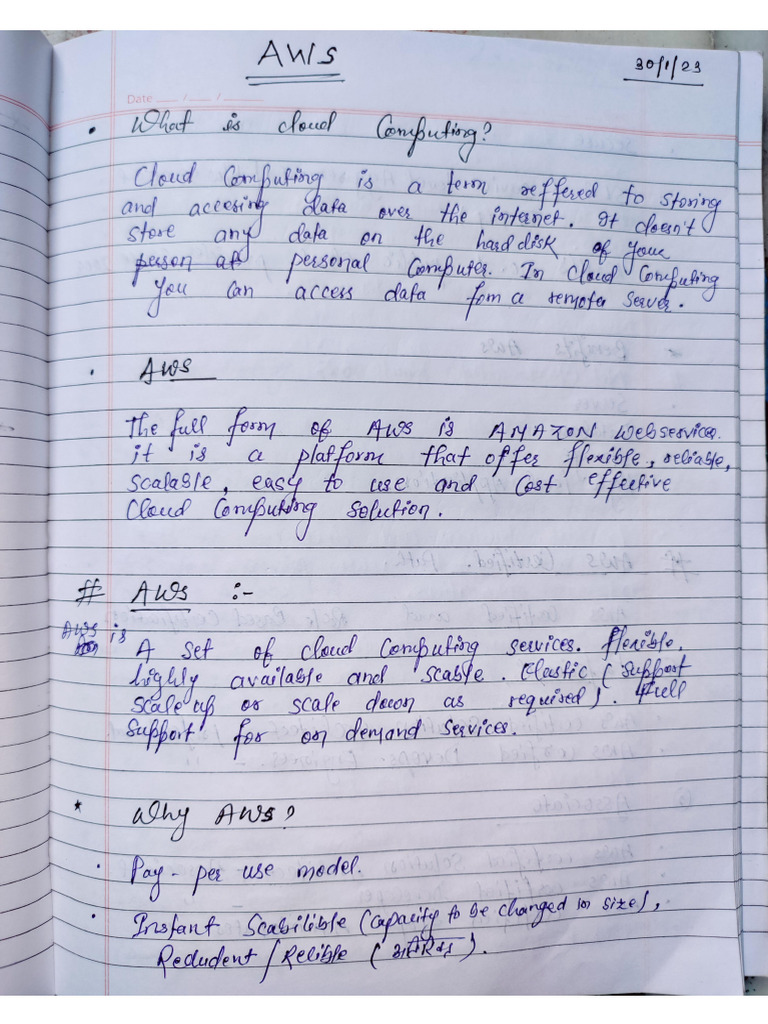 AWS
30/1/23
Date __ / __ / __
• What is cloud Computing?
Cloud Computing is a term reffered to storing
and accesing data over the internet. It doesn't
store any data on the harddisk of your
person at personal Computer. In cloud Computing
you can access data fom a remote server.
• AWS
The full form of AWS is AMAZON Webservices.
it is a platform that offer flexible, reliable,
scalable, easy to use and Cost effective
Cloud Computing Solution.
# AWS :-
AWS is
A set of cloud Computing services. flexible,
highly available and scable. Elastic (support
scale up or scale down as required). Full
Support for on demand services.
* Why AWS?
• Pay-per use model.
• Instant Scabilible (capacity to be changed in size),
Redudent / Relible ( ).